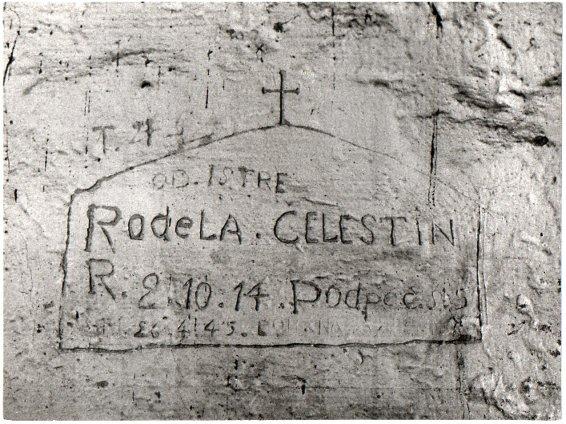 T.
OD. ISTRE
RodeLA. CELESTIN
R. 2.10.14. Podpeč.
26.4.45.